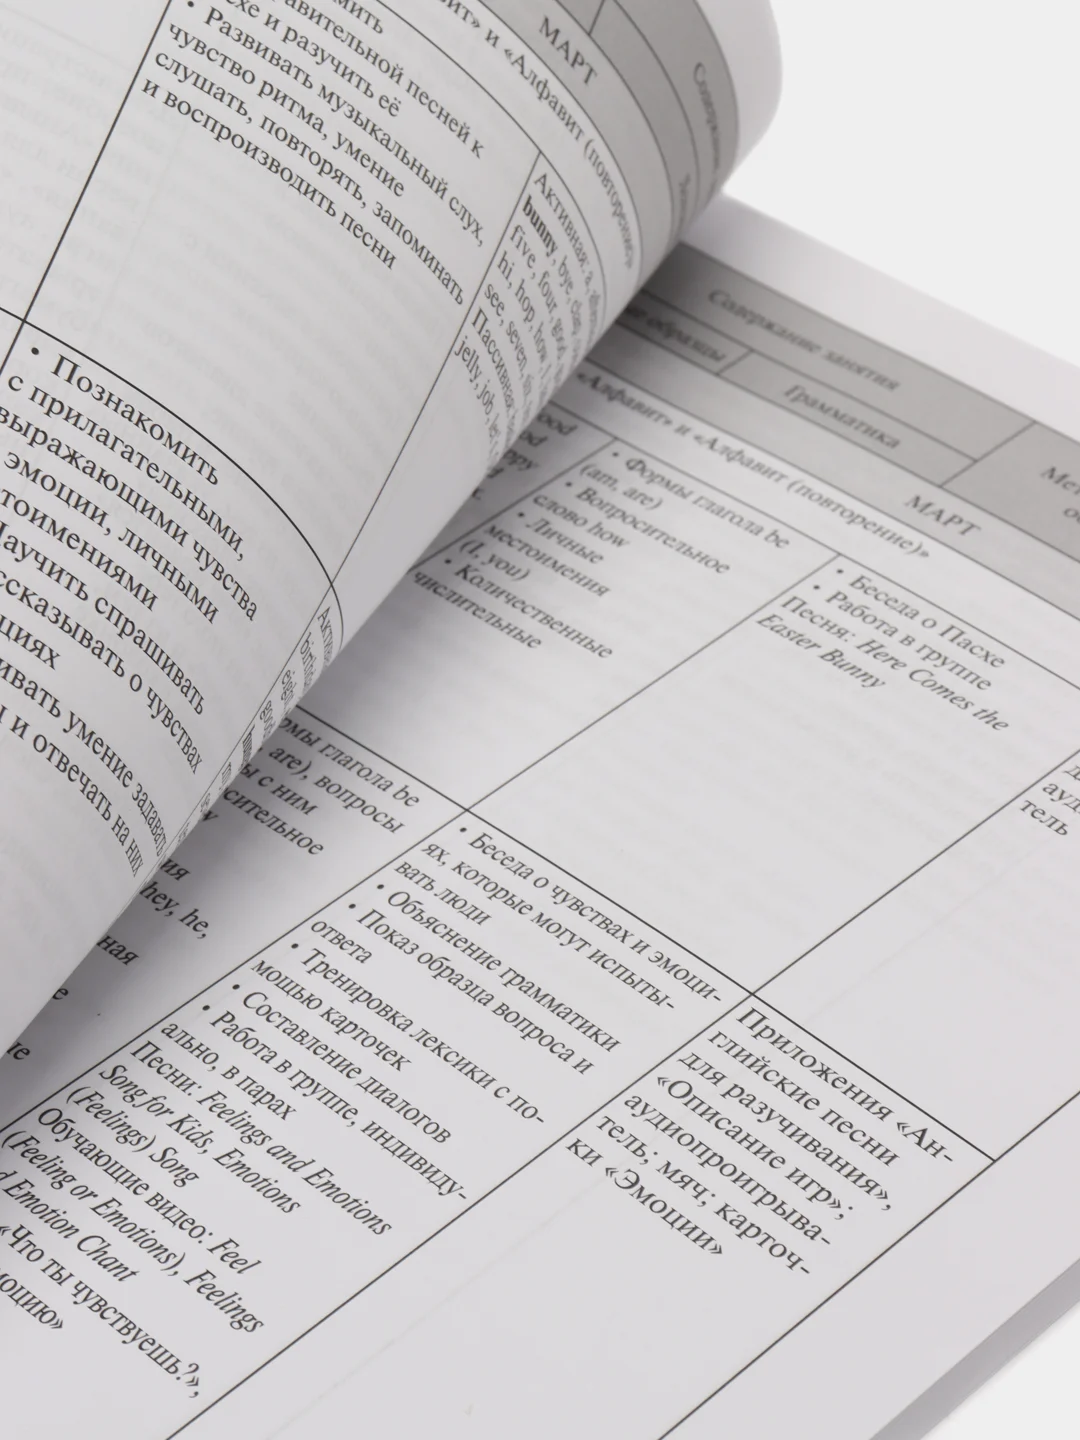 МИТЬ
равительной песней к
схе и разучить её
• Развивать музыкальный слух,
чувство ритма, умение
слушать, повторять, запоминать
и воспроизводить песни
вит» и «Алфавит (повторение)»
МАРТ
Активная: a,
bunny, bye,
five, four, good,
hi, hop, how,
see, seven,
Пассивная:
jelly, job,
• Познакомить
с прилагательными,
выражающими чувства
эмоции, личными
стоимениями
Научить спрашивать
ссказывать о чувствах
циях
ивать умение задавать
и отвечать на них
Содержание занятия
ые образцы
Грамматика
МАРТ
«Алфавит» и «Алфавит (повторение)»
• Формы глагола be
(am, are)
• Вопросительное
слово how
• Личные
местоимения
(I, you)
• Количественные
числительные
• Беседа о Пасхе
• Работа в группе
Песня: Here Comes the
Easter Bunny
ауд
тель
рмы глагола be
are), вопросы
ы с ним
сительное
hey, he,
ная
• Беседа о чувствах и эмоци-
ях, которые могут испыты-
вать люди
• Объяснение грамматики
• Показ образца вопроса и
ответа
• Тренировка лексики с по-
мощью карточек
• Составление диалогов
• Работа в группе, индивиду-
ально, в парах
Песни: Feelings and Emotions
Song for Kids, Emotions
(Feelings) Song
Обучающие видео: Feel
(Feeling or Emotions), Feelings
d Emotion Chant
«Что ты чувствуешь?»,
моцию»
Приложения «Ан-
глийские песни
для разучивания»,
«Описание игр»;
аудиопроигрыва-
тель; мяч; карточ-
ки «Эмоции»